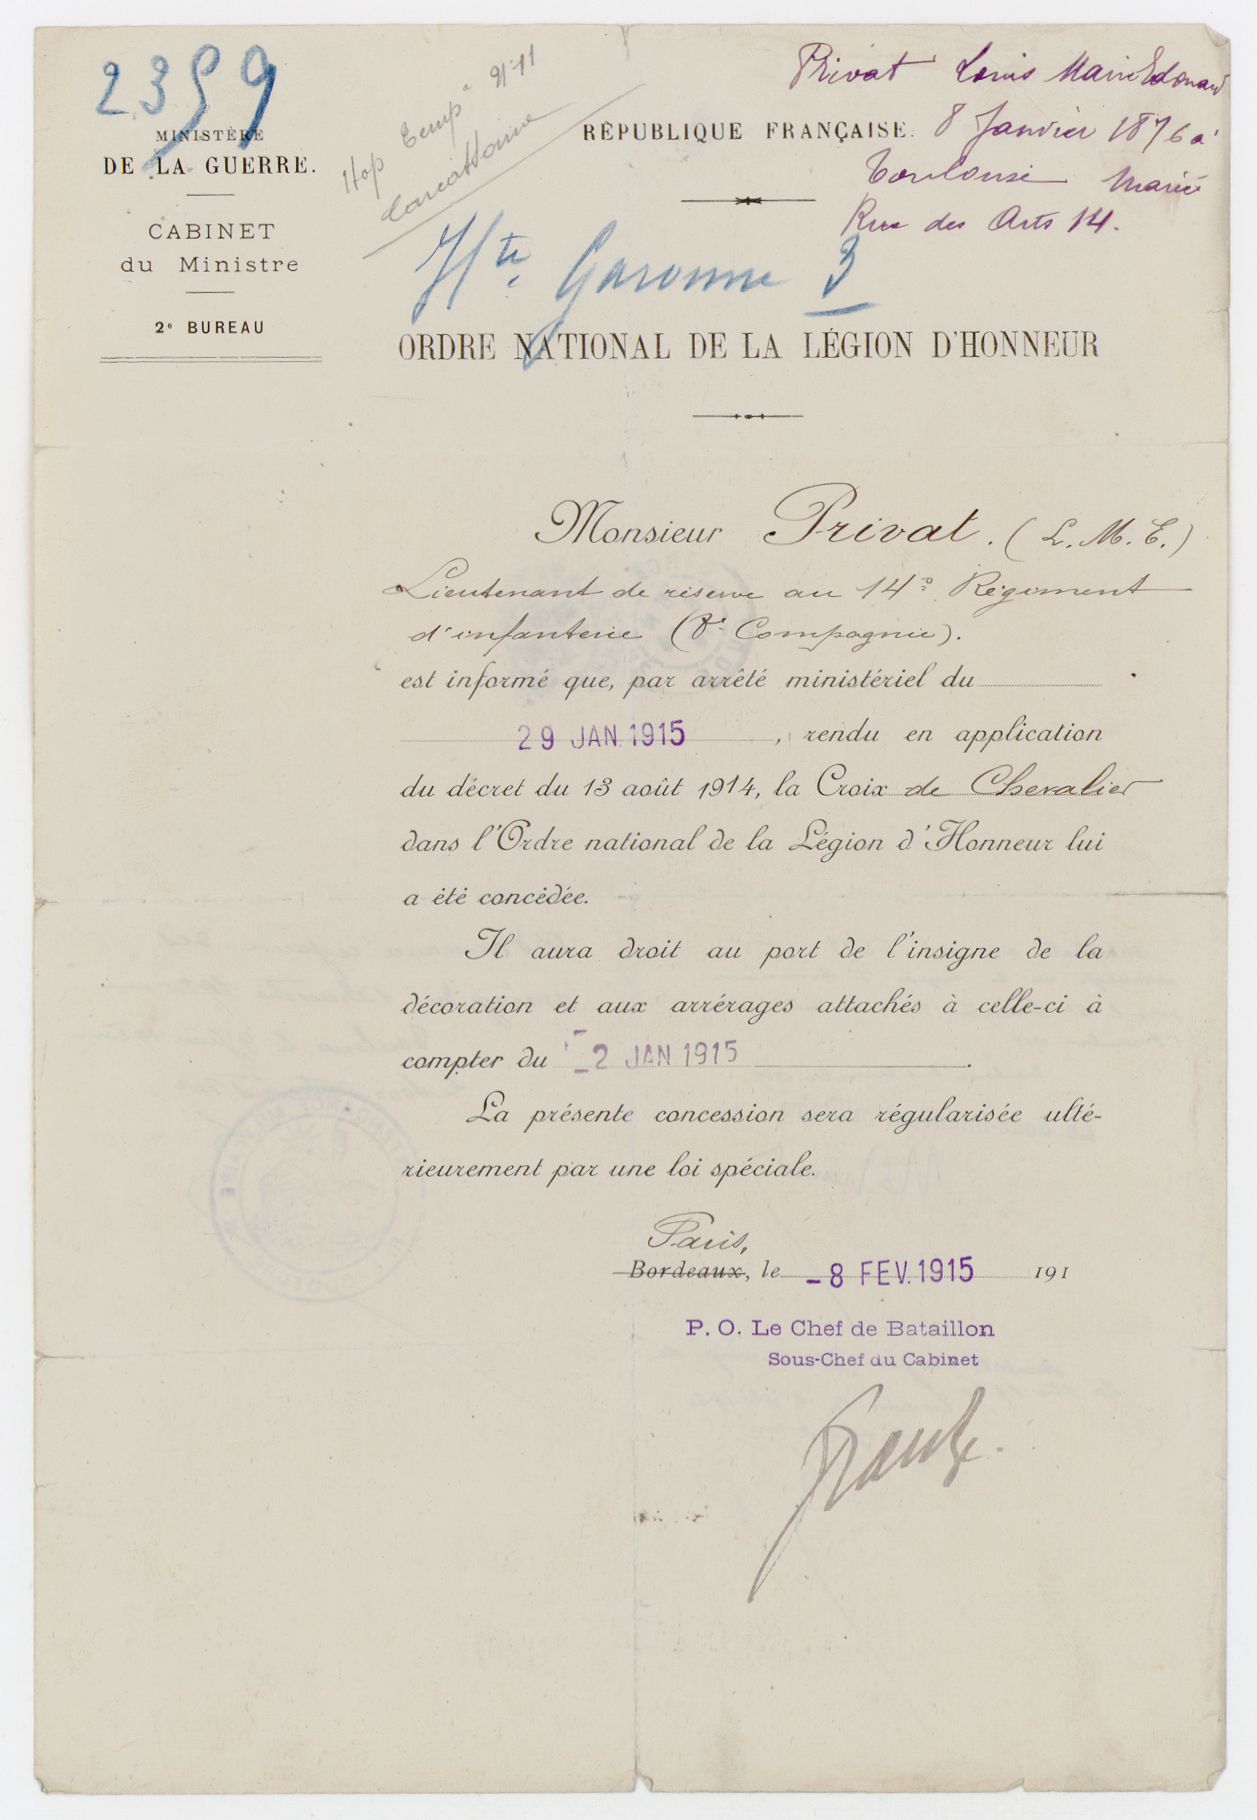 2359
MINISTÈRE
DE LA GUERRE.
CABINET
du Ministre
2e BUREAU
Hop Temp. n° 11
Carcassonne
RÉPUBLIQUE FRANÇAISE.
Privat Louis Marie Edouard
8 Janvier 1876 à
Toulouse Marié
Rue des Arts 14.
Hte Garonne 3
ORDRE NATIONAL DE LA LÉGION D'HONNEUR
Monsieur Privat. (L. M. E.)
Lieutenant de réserve au 14e Régiment
d'infanterie (8e Compagnie).
est informé que, par arrêté ministériel du
29 JAN. 1915, rendu en application
du décret du 13 août 1914, la Croix de Chevalier
dans l'Ordre national de la Légion d'Honneur lui
a été concédée.
Il aura droit au port de l'insigne de la
décoration et aux arrérages attachés à celle-ci à
compter du -2 JAN 1915.
La présente concession sera régularisée ulté-
rieurement par une loi spéciale.
Paris,
Bordeaux, le -8 FEV. 1915 191
P. O. Le Chef de Bataillon
Sous-Chef du Cabinet